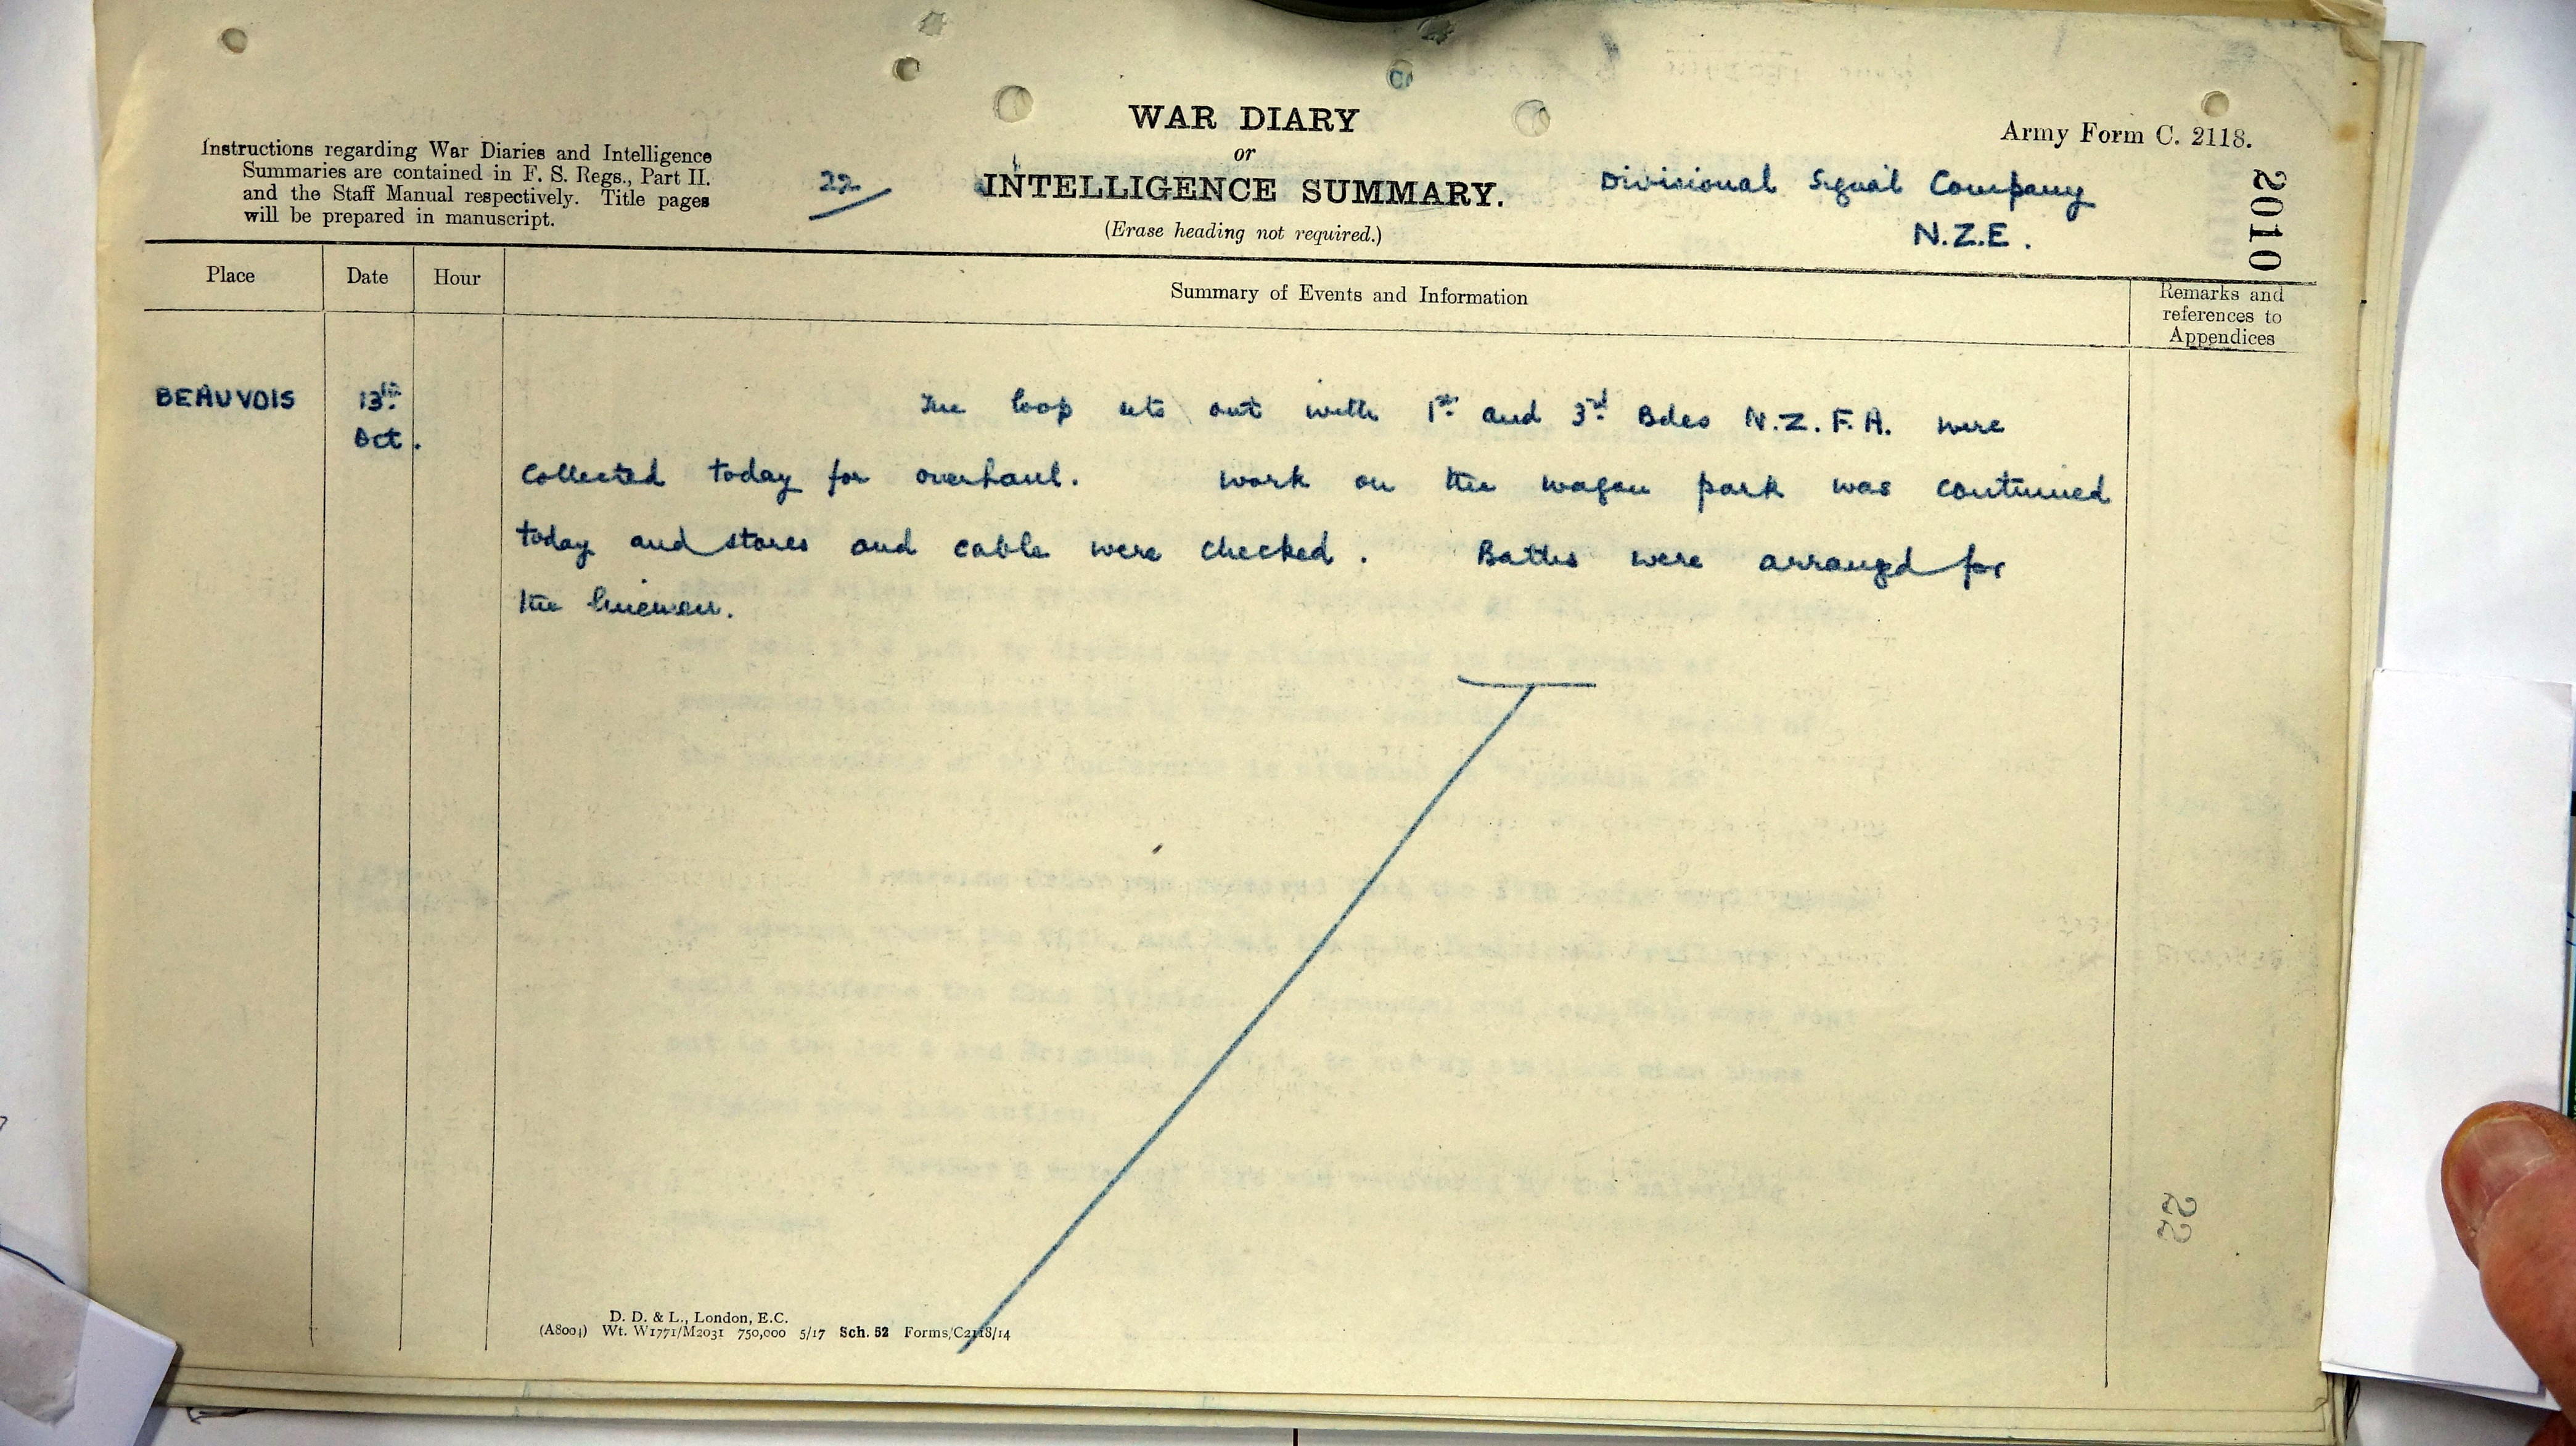 WAR DIARY
or
INTELLIGENCE SUMMARY.
(Erase heading not required.)
Instructions regarding War Diaries and Intelligence
Summaries are contained in F. S. Regs., Part II.
and the Staff Manual respectively. Title pages
will be prepared in manuscript.
22
Army Form C. 2118.
Divisional Signal Company
N.Z.E.
2010
Place Date Hour Summary of Events and Information
Remarks and
references to
Appendices
BEAUVOIS 13th Oct.
The loop sets out with 1st and 3rd Bdes N.Z.F.A. were
collected today for overhaul. Work on the wagon park was continued
today and stores and cable were checked. Baths were arranged for
the linemen.
22
D. D. & L., London, E.C.
(A8004) Wt. W1771/M2031 750,000 5/17 Sch. 52 Forms/C2118/14